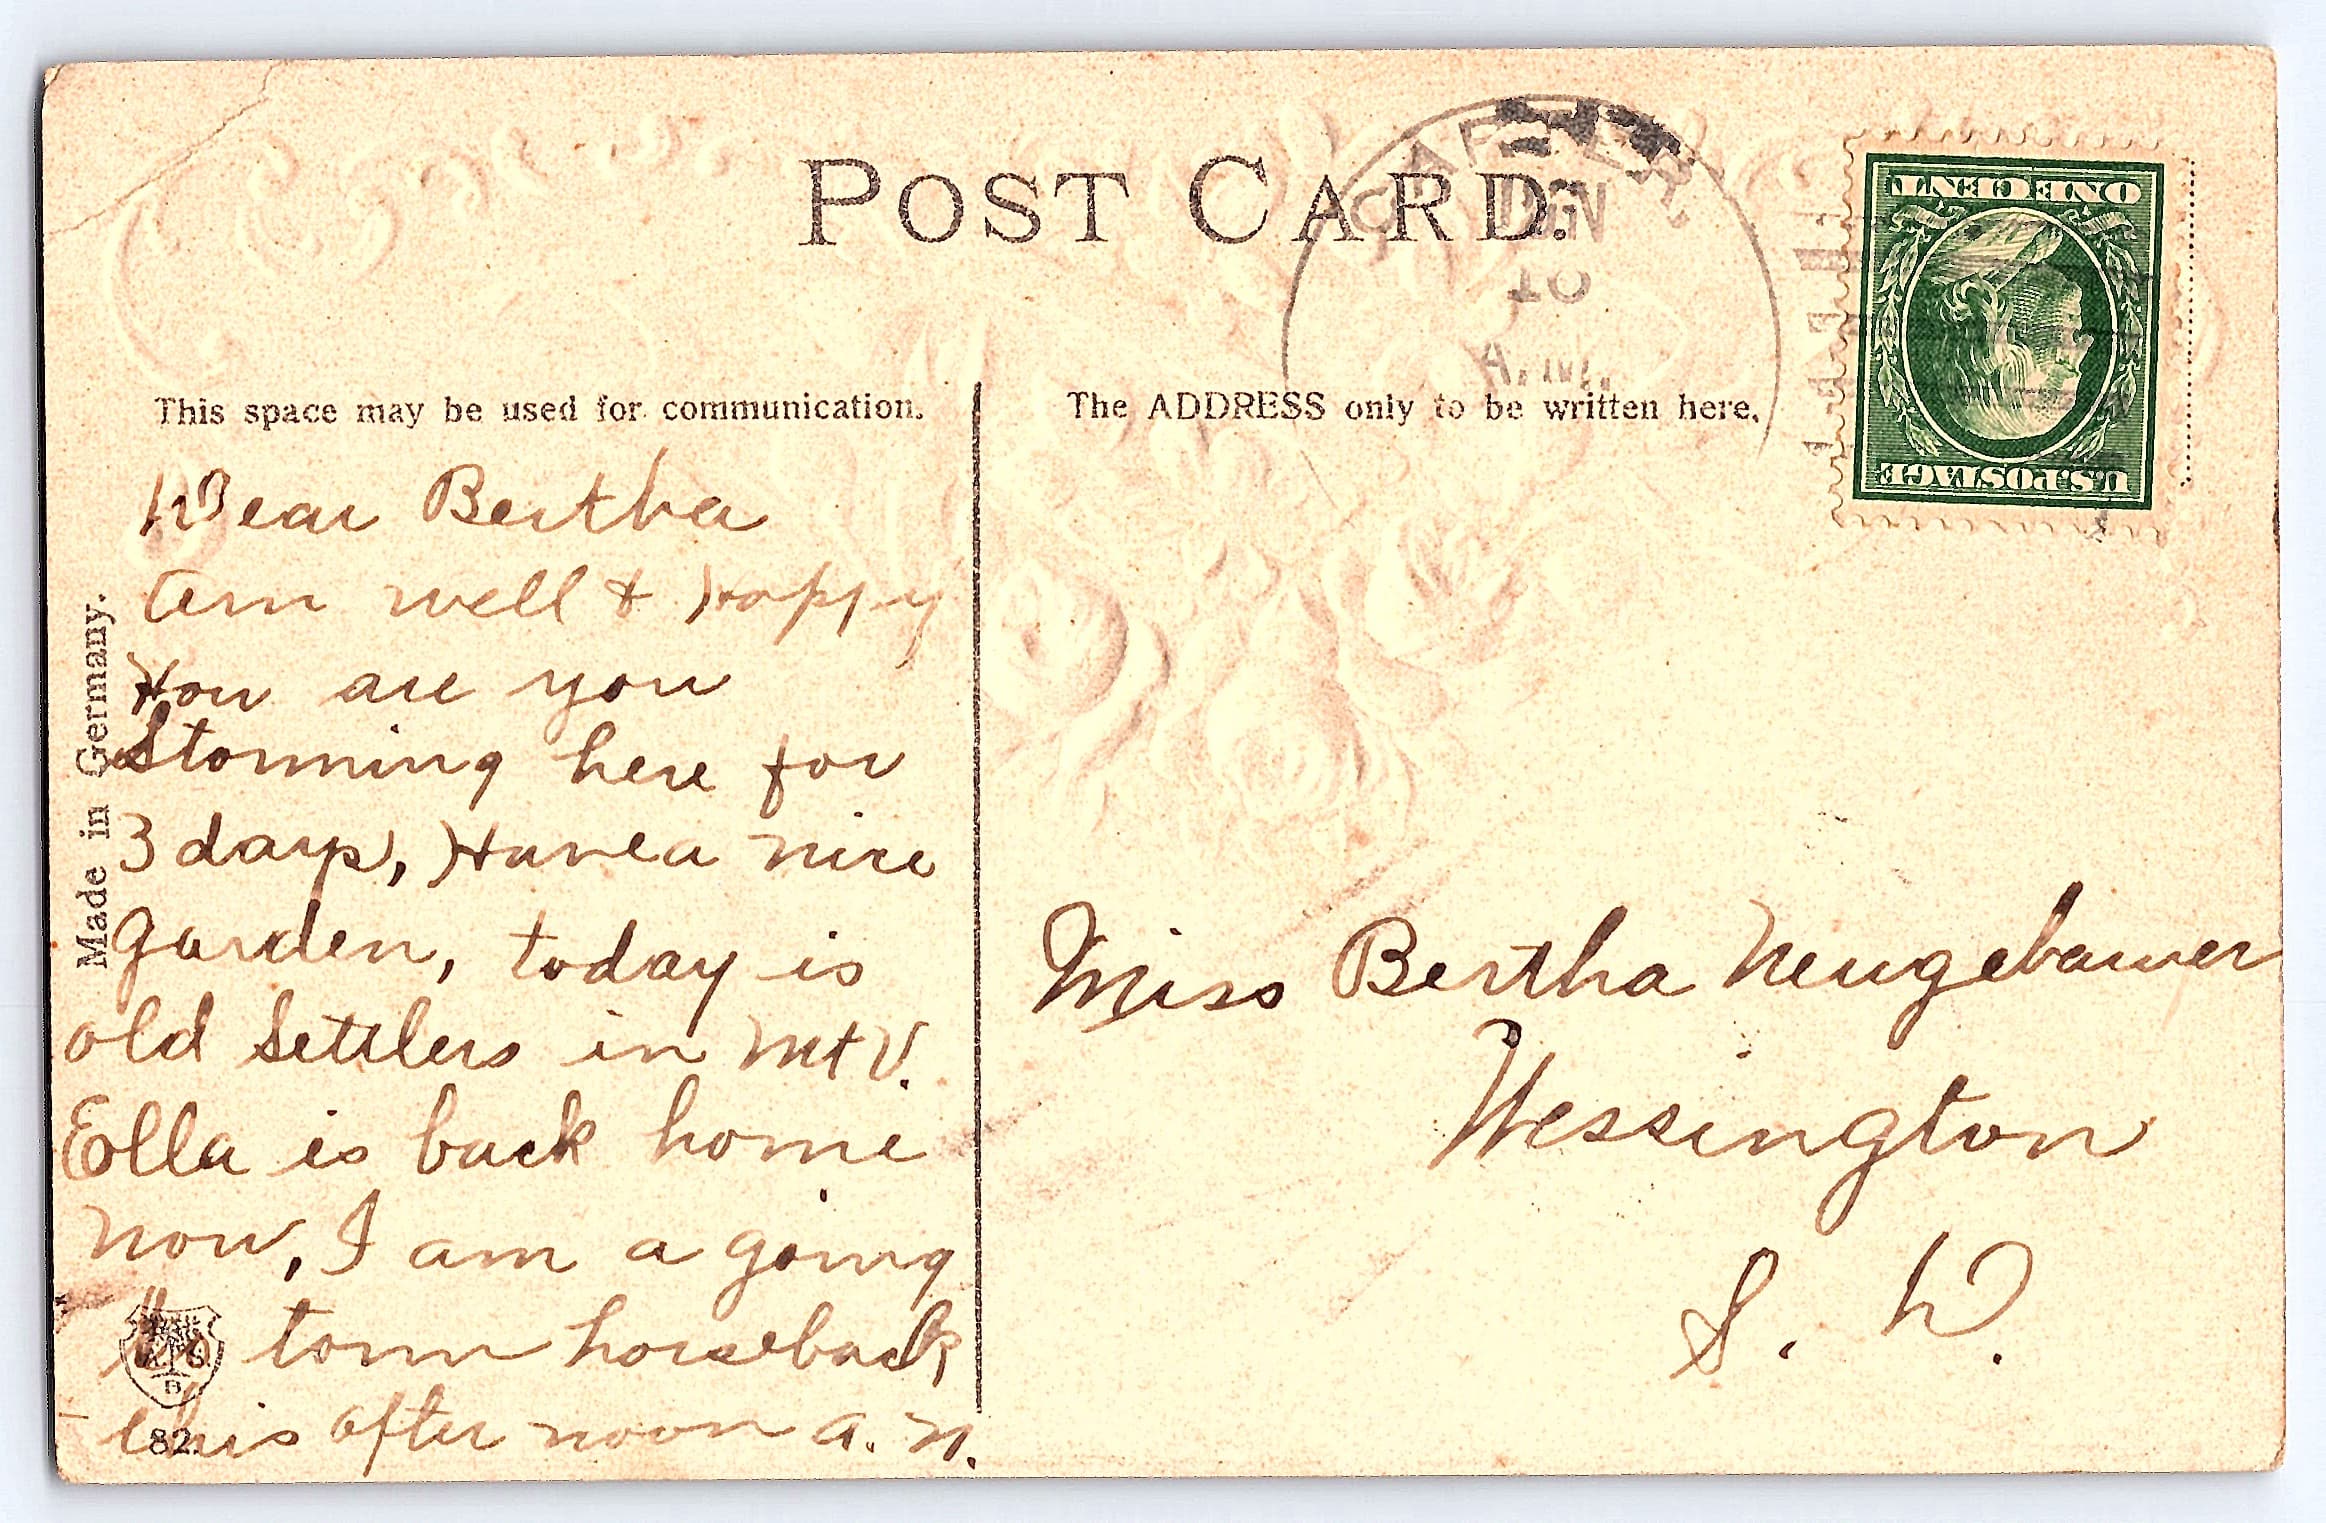 POST CARD.
CARTER
JUN
10
A.M.
ONE CENT
U.S. POSTAGE
This space may be used for communication.
The ADDRESS only to be written here.
Made in Germany.
Dear Bertha
Am well & Happy
How are you
Storming here for
3 days, Have a nice
garden, today is
old Settlers in Mt V.
Ella is back home
now, I am a going
to town horseback
this after noon A. N.
82.
Miss Bertha Neugebauer
Wessington
S. D.